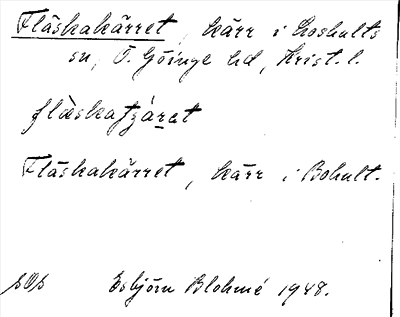 Fläskakärret, kärr i Loshults
sn, Ö. Göinge hd, Krist. l.
flæskatjáret
Fläskakärret, kärr i Bohult.
sOs Esbjörn Blohmé 1948.